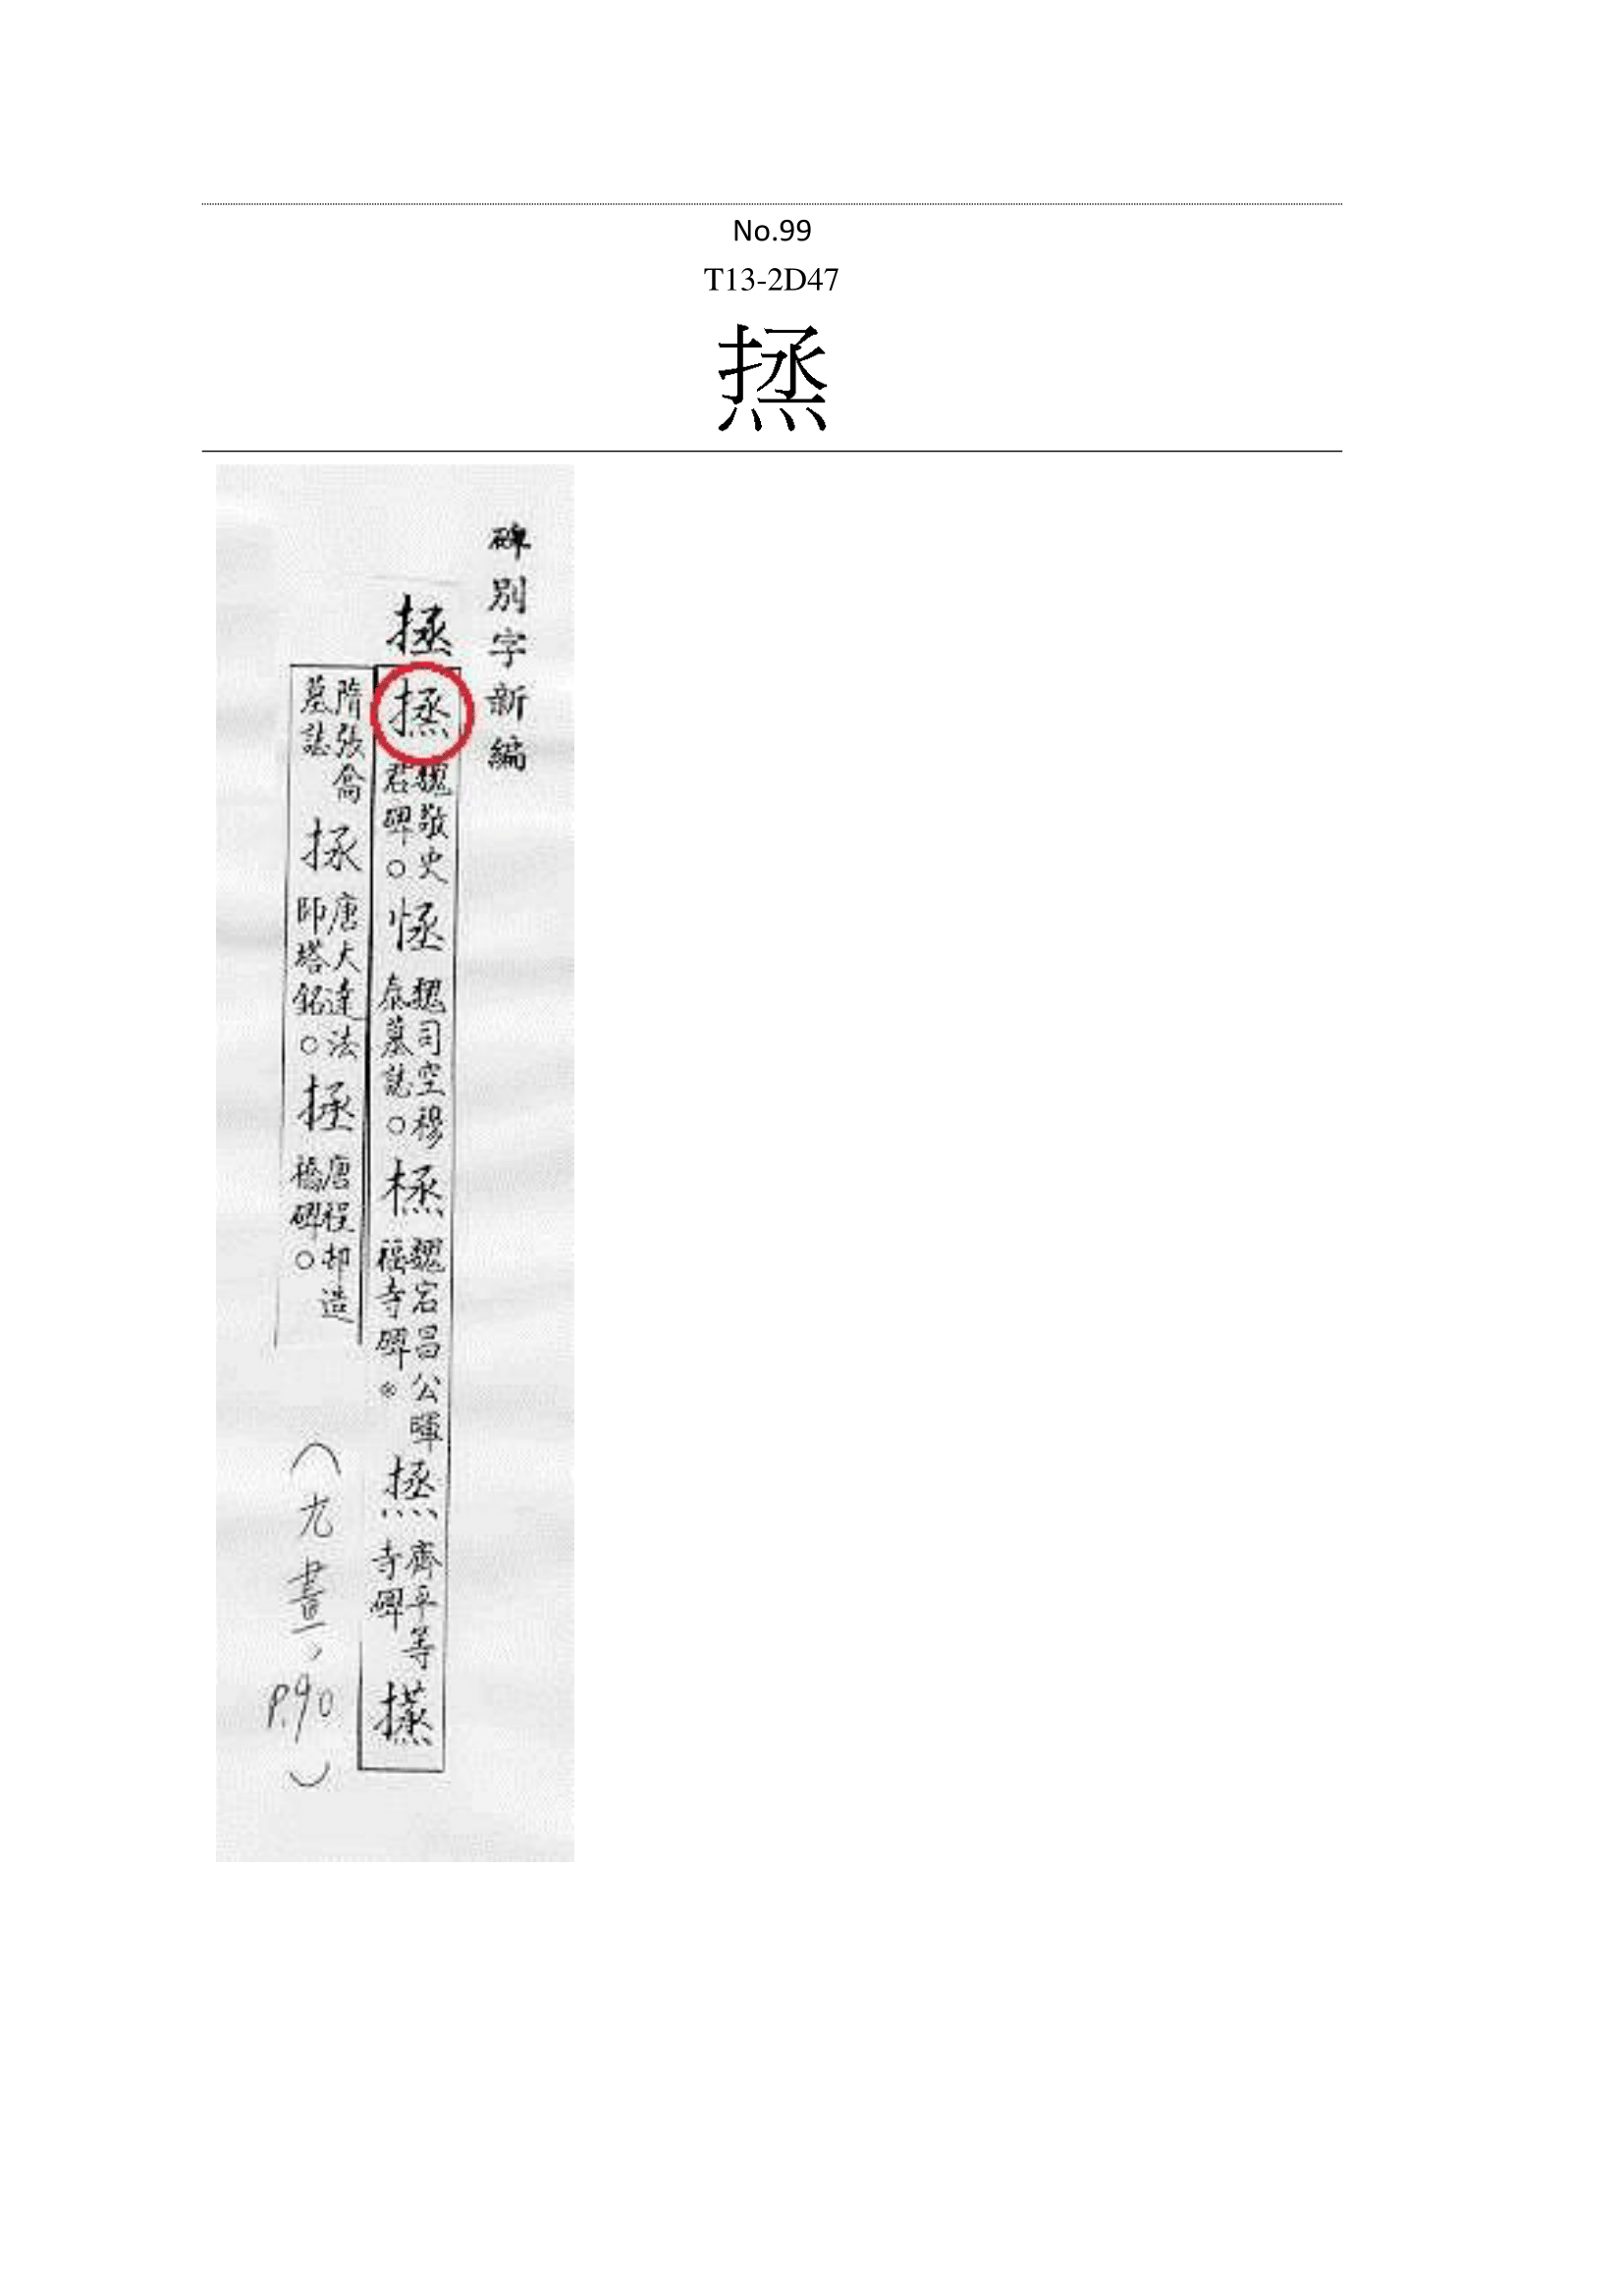 No.99
T13-2D47
碑別字新編
拯
魏敬史君碑○
魏司空穆泰墓誌○
魏宕昌公暉福寺碑※
齊平等寺碑
隋張喬墓誌
唐大達法師塔銘○
拯
唐程邨造橋碑○
(九畫，P.90)